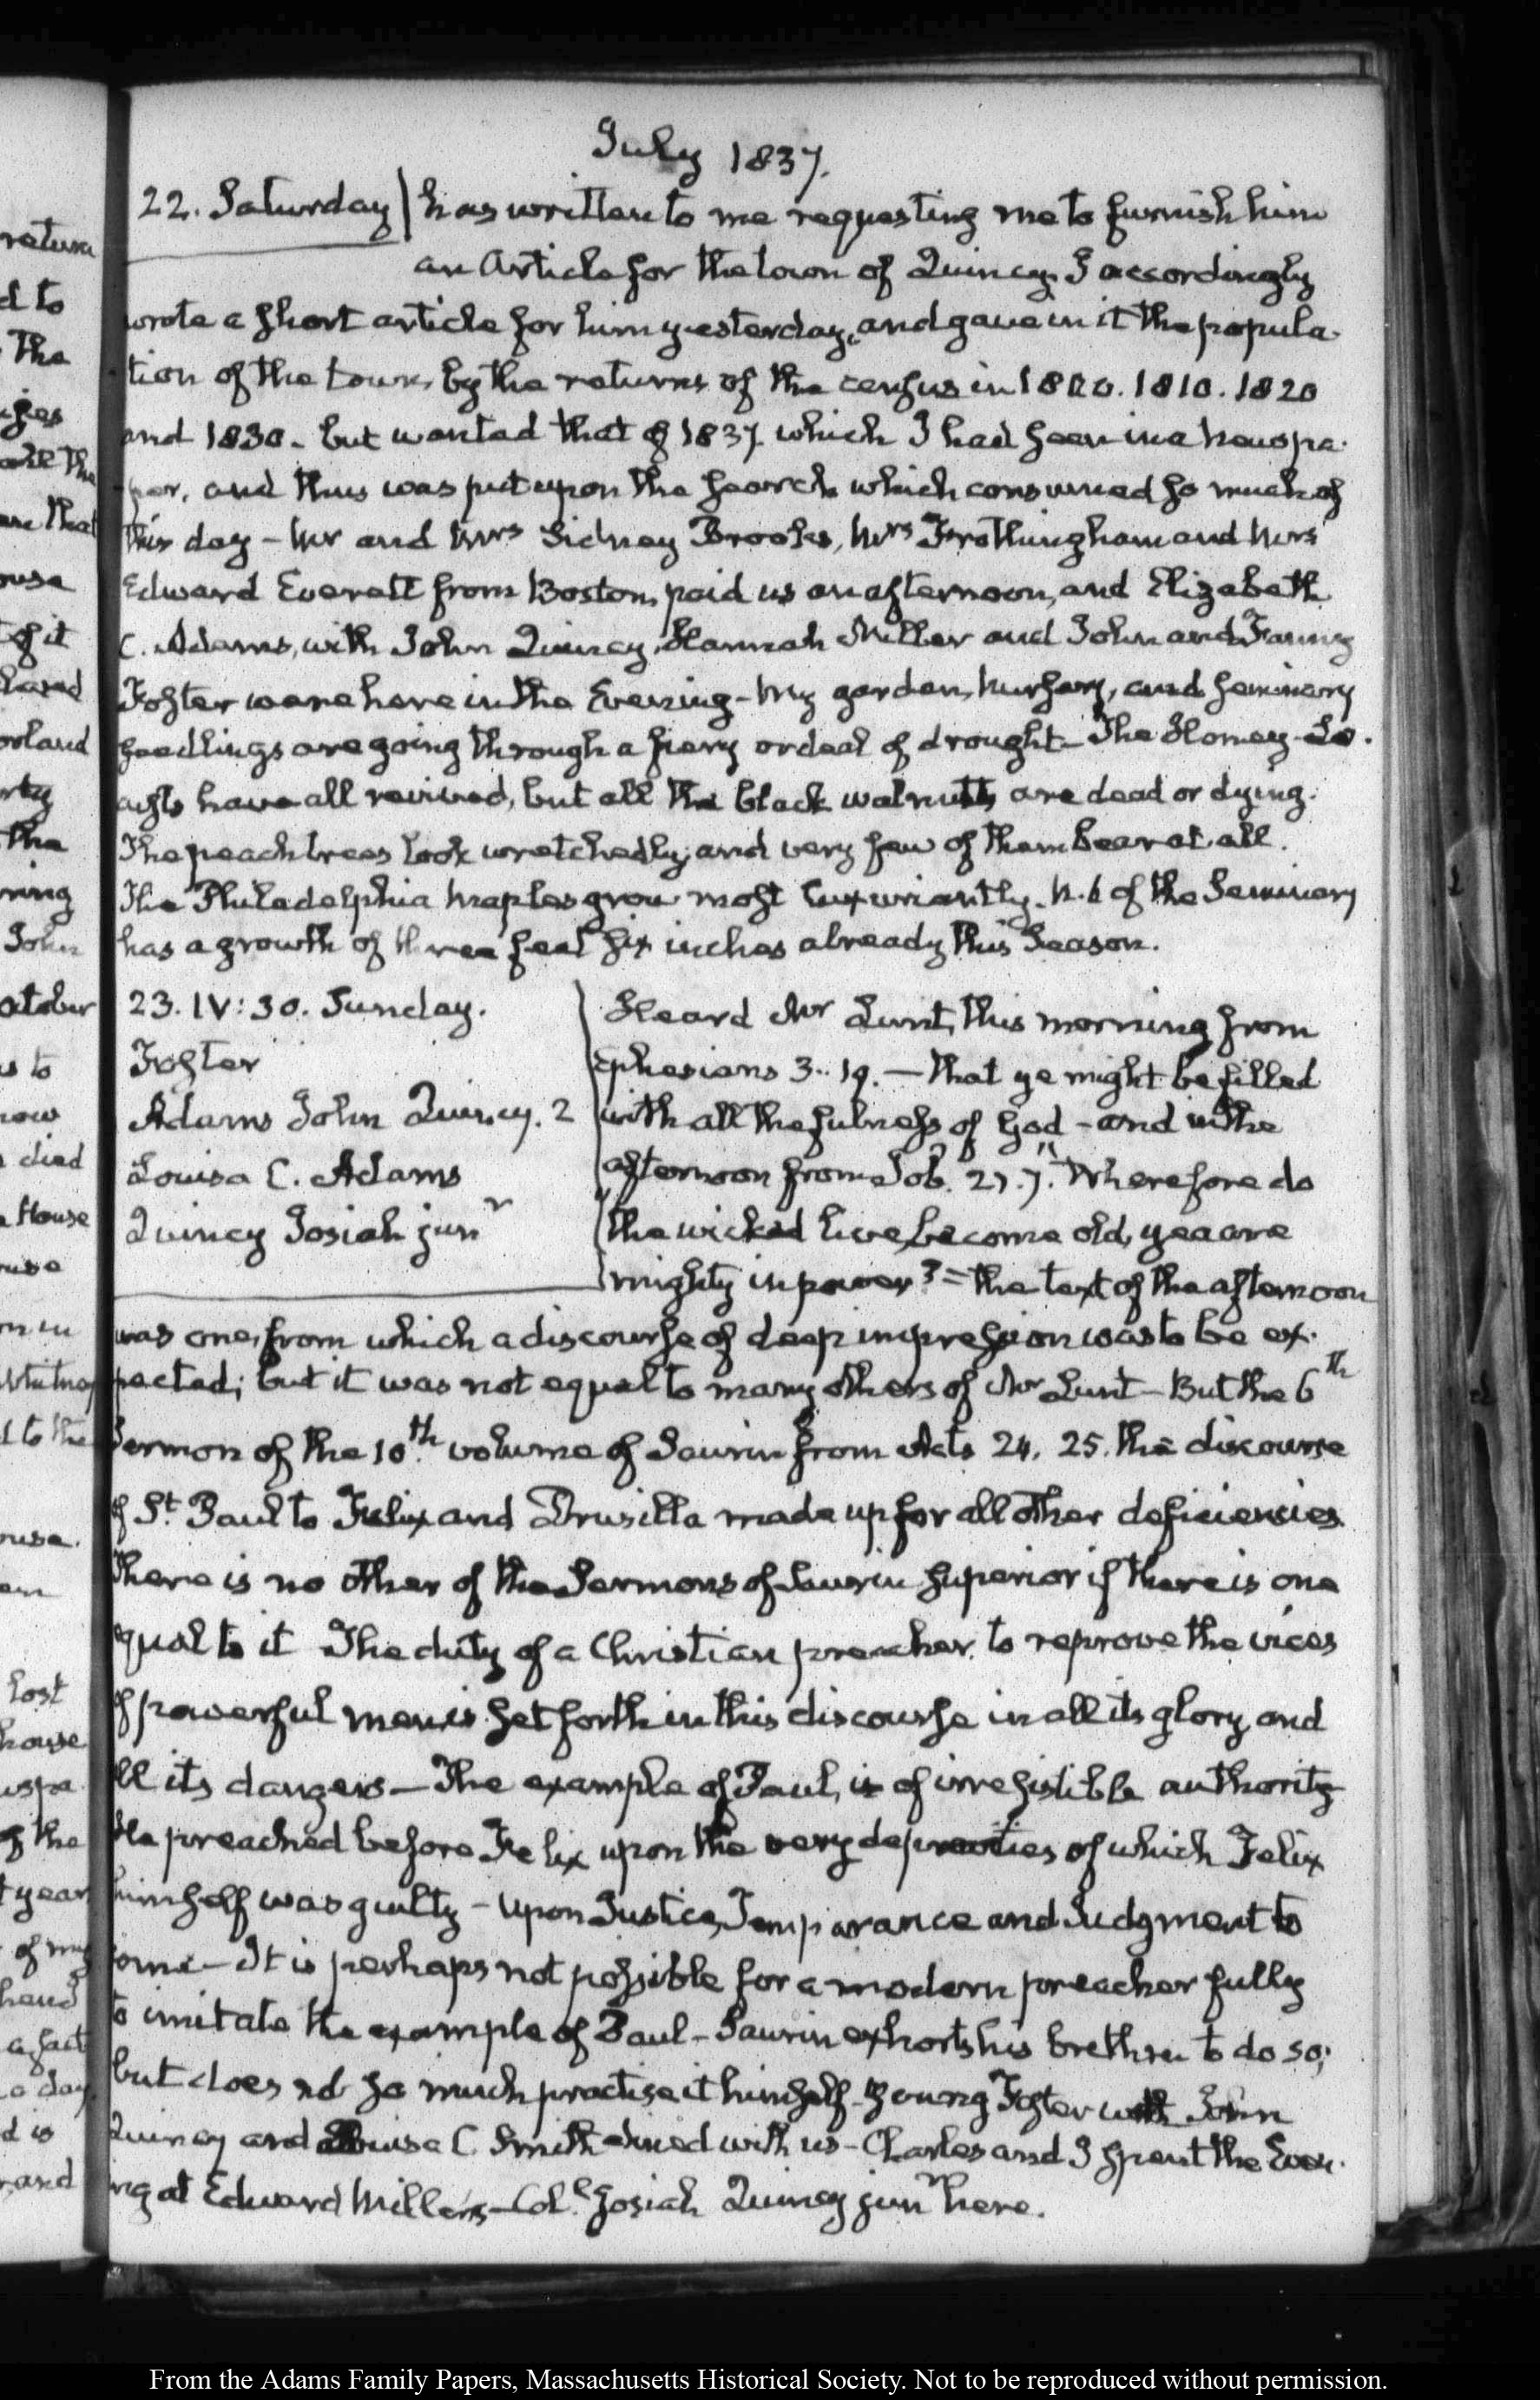 July 1837.
22. Saturday has written to me requesting me to furnish him
an Article for the town of Quincy. I accordingly
wrote a short article for him yesterday, and gave in it the popula-
tion of the town, by the returns of the census in 1800. 1810. 1820
and 1830 - but wanted that of 1837 which I had seen in a Newspa-
per, and thus was put upon the search which consumed so much of
this day - Mr and Mrs Sidney Brooks, Mrs Frothingham and Mrs
Edward Everett from Boston, paid us an afternoon, and Elizabeth
C. Adams, with John Quincy, Hannah Miller and John and Fanny
Foster were here in the Evening - My garden, nursery, and seminary
seedlings are going through a fiery ordeal of drought - The Honey-Lo-
custs have all revived, but all the black walnuts are dead or dying.
The peach trees look wretchedly, and very few of them bear at all.
The Philadelphia Maples grow most luxuriantly. N. 6 of the Seminary
has a growth of three feet six inches already this Season.
23. IV: 30. Sunday.
Foster
Adams John Quincy. 2
Louisa C. Adams
Quincy Josiah junr
Heard Mr Lunt, this morning from
Ephesians 3. 19. — that ye might be filled
with all the fulness of God - and in the
afternoon from Job. 21. 7. "Wherefore do
the wicked live, become old, yea are
mighty in power? = the text of the afternoon
was one, from which a discourse of deep impression was to be ex-
pected; but it was not equal to many others of Mr Lunt - But the 6th
Sermon of the 10th volume of Saurin from Acts 24. 25. the discourse
of St Paul to Felix and Drusilla made up for all other deficiencies
There is no other of the Sermons of Saurin superior if there is one
equal to it The duty of a Christian preacher, to reprove the vices
of powerful men is set forth in this discourse in all its glory and
all its dangers — The example of Paul, is of irresistible authority
He preached before Felix upon the very depravities of which Felix
himself was guilty - upon Justice, Temperance and Judgment to
come - It is perhaps not possible for a modern preacher fully
to imitate the example of Paul - Saurin exhorts his brethren to do so;
but does not so much practise it himself. Young Foster with John
Quincy and Louisa C Smith dined with us - Charles and I spent the Even-
ing at Edward Miller's - Coll Josiah Quincy junr here.
From the Adams Family Papers, Massachusetts Historical Society. Not to be reproduced without permission.